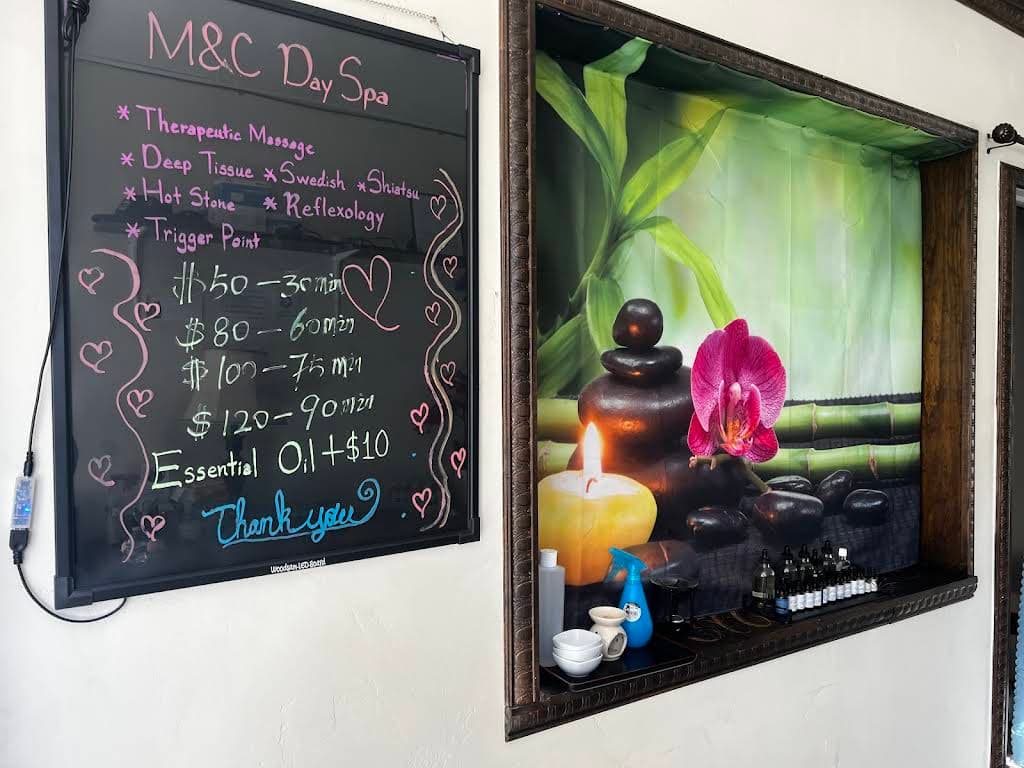 M&C Day Spa
* Therapeutic Massage
* Deep Tissue * Swedish * Shiatsu
* Hot Stone * Reflexology
* Trigger Point
$50 - 30min
$80 - 60min
$100 - 75 min
$120 - 90min
Essential Oil + $10
Thank you
Woodsam-LED Board